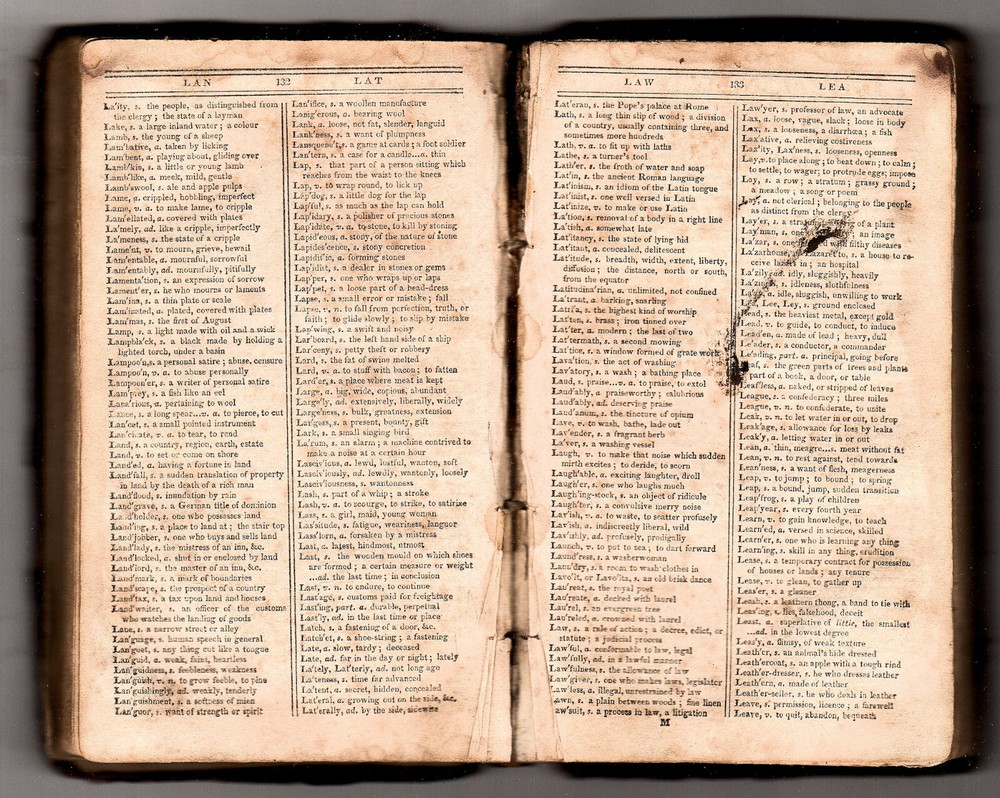 LAN 132 LAT
La'ity, s. the people, as distinguished from
the clergy; the state of a layman
Lake, s. a large inland water; a colour
Lamb, s. the young of a sheep
Lam'bative, a. taken by licking
Lam'bent, a. playing about, gliding over
Lamb'kin, s. a little or young lamb
Lamb'like, a. meek, mild, gentle
Lamb'swool, s. ale and apple pulps
Lame, a. crippled, hobbling, imperfect
Lame, v. a. to make lame, to cripple
Lam'ellated, a. covered with plates
La'mely, ad. like a cripple, imperfectly
La'meness, s. the state of a cripple
Lame'nt, v. to mourn, grieve, bewail
Lam'entable, a. mournful, sorrowful
Lam'entably, ad. mournfully, pitifully
Lamenta'tion, s. an expression of sorrow
Lament'er, s. he who mourns or laments
Lam'ina, s. a thin plate or scale
Lam'inated, a. plated, covered with plates
Lam'mas, s. the first of August
Lamp, s. a light made with oil and a wick
Lampbla'ck, s. a black made by holding a
lighted torch, under a basin
Lampoo'n, s. a personal satire; abuse, censure
Lampoo'n, v. a. to abuse personally
Lampoon'er, s. a writer of personal satire
Lam'prey, s. a fish like an eel
Lana'rious, a. pertaining to wool
Lance, s. a long spear...v. a. to pierce, to cut
Lan'cet, s. a small pointed instrument
Lan'cinate, v. a. to tear, to rend
Land, s. a country, region, earth, estate
Land, v. to set or come on shore
Land'ed, a. having a fortune in land
Land'fall, s. a sudden translation of property
in land by the death of a rich man
Land'flood, s. inundation by rain
Land'grave, s. a German title of dominion
Land'holder, s. one who possesses land
Land'ing, s. a place to land at; the stair top
Land'jobber, s. one who buys and sells land
Land'lady, s. the mistress of an inn, &c.
Land'locked, a. shut in or enclosed by land
Land'lord, s. the master of an inn, &c.
Land'mark, s. a mark of boundaries
Land'scape, s. the prospect of a country
Land'tax, s. a tax upon land and houses
Land'waiter, s. an officer of the customs
who watches the landing of goods
Lane, s. a narrow street or alley
Lan'guage, s. human speech in general
Lan'guet, s. any thing cut like a tongue
Lan'guid, a. weak, faint, heartless
Lan'guidness, s. feebleness, weakness
Lan'guish, v. n. to grow feeble, to pine
Lan'guishingly, ad. weakly, tenderly
Lan'guishment, s. a softness of mien
Lan'guor, s. want of strength or spirit
Lan'ifice, s. a woollen manufacture
Lanig'erous, a. bearing wool
Lank, a. loose, not fat, slender, languid
Lank'ness, s. a want of plumpness
Lansquene't, s. a game at cards; a foot soldier
Lan'tern, s. a case for a candle...a. thin
Lap, s. that part of a person sitting which
reaches from the waist to the knees
Lap, v. to wrap round, to lick up
Lap'dog, s. a little dog for the lap
Lap'ful, s. as much as the lap can hold
Lap'idary, s. a polisher of precious stones
Lap'idate, v. a. to stone, to kill by stoning
Lapid'eous, a. stony, of the nature of stone
Lapides'cence, s. stony concretion
Lapidif'ic, a. forming stones
Lap'idist, s. a dealer in stones or gems
Lap'per, s. one who wraps up or laps
Lap'pet, s. a loose part of a head-dress
Lapse, s. a small error or mistake; fall
Lapse, v. n. to fall from perfection, truth, or
faith; to glide slowly; to slip by mistake
Lap'wing, s. a swift and noisy
Lar'board, s. the left hand side of a ship
Lar'ceny, s. petty theft or robbery
Lard, s. the fat of swine melted
Lard, v. a. to stuff with bacon; to fatten
Lard'er, s. a place where meat is kept
Large, a. big, wide, copious, abundant
Large'ly, ad. extensively, liberally, widely
Large'ness, s. bulk, greatness, extension
Lar'gess, s. a present, bounty, gift
Lark, s. a small singing bird
La'rum, s. an alarm; a machine contrived to
make a noise at a certain hour
Lasciv'ious, a. lewd, lustful, wanton, soft
Lasciv'iously, ad. lewdly, wantonly, loosely
Lasciv'iousness, s. wantonness
Lash, s. part of a whip; a stroke
Lash, v. a. to scourge, to strike, to satirize
Lass, s. a girl, maid, young woman
Las'situde, s. fatigue, weariness, languor
Lass'lorn, a. forsaken by a mistress
Last, a. latest, hindmost, utmost
Last, s. the wooden mould on which shoes
are formed; a certain measure or weight
...ad. the last time; in conclusion
Last, v. n. to endure, to continue
Last'age, s. customs paid for freightage
Last'ing, part. a. durable, perpetual
Last'ly, ad. in the last time or place
Latch, s. a fastening of a door, &c.
Latch'et, s. a shoe-string; a fastening
Late, a. slow, tardy; deceased
Late, ad. far in the day or night; lately
La'tely, Lat'terly, ad. not long ago
La'teness, s. time far advanced
La'tent, a. secret, hidden, concealed
Lat'eral, a. growing out on the side, &c.
Lat'erally, ad. by the side, sidewise
LAW 133 LEA
Lat'eran, s. the Pope's palace at Rome
Lath, s. a long thin slip of wood; a division
of a country, usually containing three, and
sometimes more hundreds
Lath, v. a. to fit up with laths
Lathe, s. a turner's tool
Lath'er, s. the froth of water and soap
Lat'in, s. the ancient Roman language
Lat'inism, s. an idiom of the Latin tongue
Lat'inist, s. one well versed in Latin
Lat'inize, v. to make or use Latin
La'tion, s. removal of a body in a right line
La'tish, a. somewhat late
Lat'itancy, s. the state of lying hid
Lat'itant, a. concealed, delitescent
Lat'itude, s. breadth, width, extent, liberty,
diffusion; the distance, north or south,
from the equator
Latitudina'rian, a. unlimited, not confined
La'trant, a. barking, snarling
Latri'a, s. the highest kind of worship
Lat'ten, s. brass; iron tinned over
Lat'ter, a. modern; the last of two
Lat'termath, s. a second mowing
Lat'tice, s. a window formed of grate work
Lava'tion, s. the act of washing
Lav'atory, s. a wash; a bathing place
Laud, s. praise...v. a. to praise, to extol
Laud'ably, a. praiseworthy; salubrious
Laud'ably, ad. deserving praise
Laud'anum, s. the tincture of opium
Lave, v. to wash, bathe, lade out
Lav'ender, s. a fragrant herb
La'ver, s. a washing vessel
Laugh, v. to make that noise which sudden
mirth excites; to deride, to scorn
Laugh'able, a. exciting laughter, droll
Laugh'er, s. one who laughs much
Laugh'ing-stock, s. an object of ridicule
Laugh'ter, s. a convulsive merry noise
Lav'ish, v. a. to waste, to scatter profusely
Lav'ish, a. indiscreetly liberal, wild
Lav'ishly, ad. profusely, prodigally
Launch, v. to put to sea; to dart forward
Laund'ress, s. a washerwoman
Laun'dry, s. a room to wash clothes in
Lavo'lt, or Lavo'lta, s. an old brisk dance
Lau'reat, s. the royal poet
Lau'reate, a. decked with laurel
Lau'rel, s. an evergreen tree
Lau'reled, a. crowned with laurel
Law, s. a rule of action; a decree, edict, or
statute; a judicial process
Law'ful, a. conformable to law, legal
Law'fully, ad. in a lawful manner
Law'fulness, s. the allowance of law
Law'giver, s. one who makes laws, legislator
Law'less, a. illegal, unrestrained by law
awn, s. a plain between woods; fine linen
aw'suit, s. a process in law, a litigation
M
Law'yer, s. professor of law, an advocate
Lax, a. loose, vague, slack; loose in body
Lax, s. a looseness, a diarrhœa; a fish
Lax'ative, a. relieving costiveness
Lax'ity, Lax'ness, s. looseness, openness
Lay, v. to place along; to beat down; to calm;
to settle; to wager; to protrude eggs; impose
Lay, s. a row; a stratum; grassy ground;
a meadow; a song or poem
Lay, a. not clerical; belonging to the people
as distinct from the clergy
Lay'er, s. a stratum of a plant
Lay'man, s. one an image
La'zar, s. one with filthy diseases
La'zarhouse, Lazaret'to, s. a house to re-
ceive lazars in; an hospital
La'zily, ad. idly, sluggishly, heavily
La'ziness, s. idleness, slothfulness
La'zy, a. idle, sluggish, unwilling to work
Lea, Lee, Ley, s. ground enclosed
Lead, s. the heaviest metal, except gold
Lead, v. to guide, to conduct, to induce
Lead'en, a. made of lead; heavy, dull
Le'ader, s. a conductor, a commander
Le'ading, part. a. principal, going before
Leaf, s. the green parts of trees and plants
part of a book, a door, or table
Leaf'less, a. naked, or stripped of leaves
League, s. a confederacy; three miles
League, v. n. to confederate, to unite
Leak, v. n. to let water in or out, to drop
Leak'age, s. allowance for loss by leaks
Leak'y, a. letting water in or out
Lean, a. thin, meagre...s. meat without fat
Lean, v. n. to rest against, tend towards
Lean'ness, s. a want of flesh, meagerness
Leap, v. to jump; to bound; to spring
Leap, s. a bound, jump, sudden transition
Leap'frog, s. a play of children
Leap'year, s. every fourth year
Learn, v. to gain knowledge, to teach
Learn'ed, a. versed in science, skilled
Learn'er, s. one who is learning any thing
Learn'ing, s. skill in any thing, erudition
Lease, s. a temporary contract for possession
of houses or lands; any tenure
Lease, v. to glean, to gather up
Leas'er, s. a gleaner
Leash, s. a leathern thong, a band to tie with
Leas'ing, s. lies, falsehood, deceit
Least, a. superlative of little, the smallest
...ad. in the lowest degree
Leas'y, a. flimsy, of weak texture
Leath'er, s. an animal's hide dressed
Leath'ercoat, s. an apple with a tough rind
Leath'er-dresser, s. he who dresses leather
Leath'ern, a. made of leather
Leath'er-seller, s. he who deals in leather
Leave, s. permission, licence; a farewell
Leave, v. to quit, abandon, bequeath